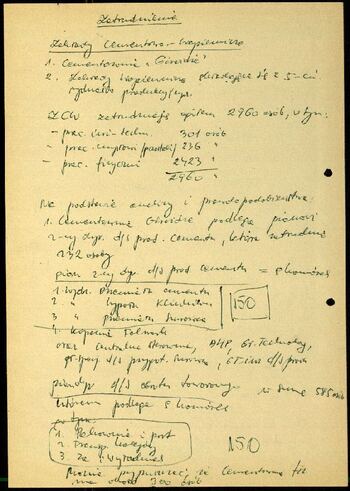 Zatrudnienie
Zakłady Cementowo-Wapiennicze
1. Cementownia "Górażdże"
2. Zakłady Wapiennicze składające się z 5-ciu
wydziałów produkcyjnych.
ZCW zatrudniają ogółem 2960 osób, w tym:
- prac. inż-techn. 301 osób
- prac. umysłowi 236 "
- prac. fizyczni 2423 "
2960 "
Na podstawie analizy i prawdopodobieństwa:
1. Cementownia Górażdże podlega pionowi
z-cy dyr. d/s prod. cementu, która zatrudnia
292 osoby
pion z-cy dyr. d/s prod cementu = 8 komórek
1. Wydz. Przemiału cementu
2. " Wypału Klinkieru
3. " przemiału surowca
150
4. Kopalnia
oraz centralne sterowanie, BHP, Gł. Technolog,
d/s przygot. surowca, d/s prod
d/s obrotu towarowego w sumie 585 osób
któremu podlega 8 komórek
w tym:
1. Pakownia i port
2. Transp. kolejowy
3. Za i wyładunek
150
Można wypuszczać, że Cementownia
ma około 300 osób